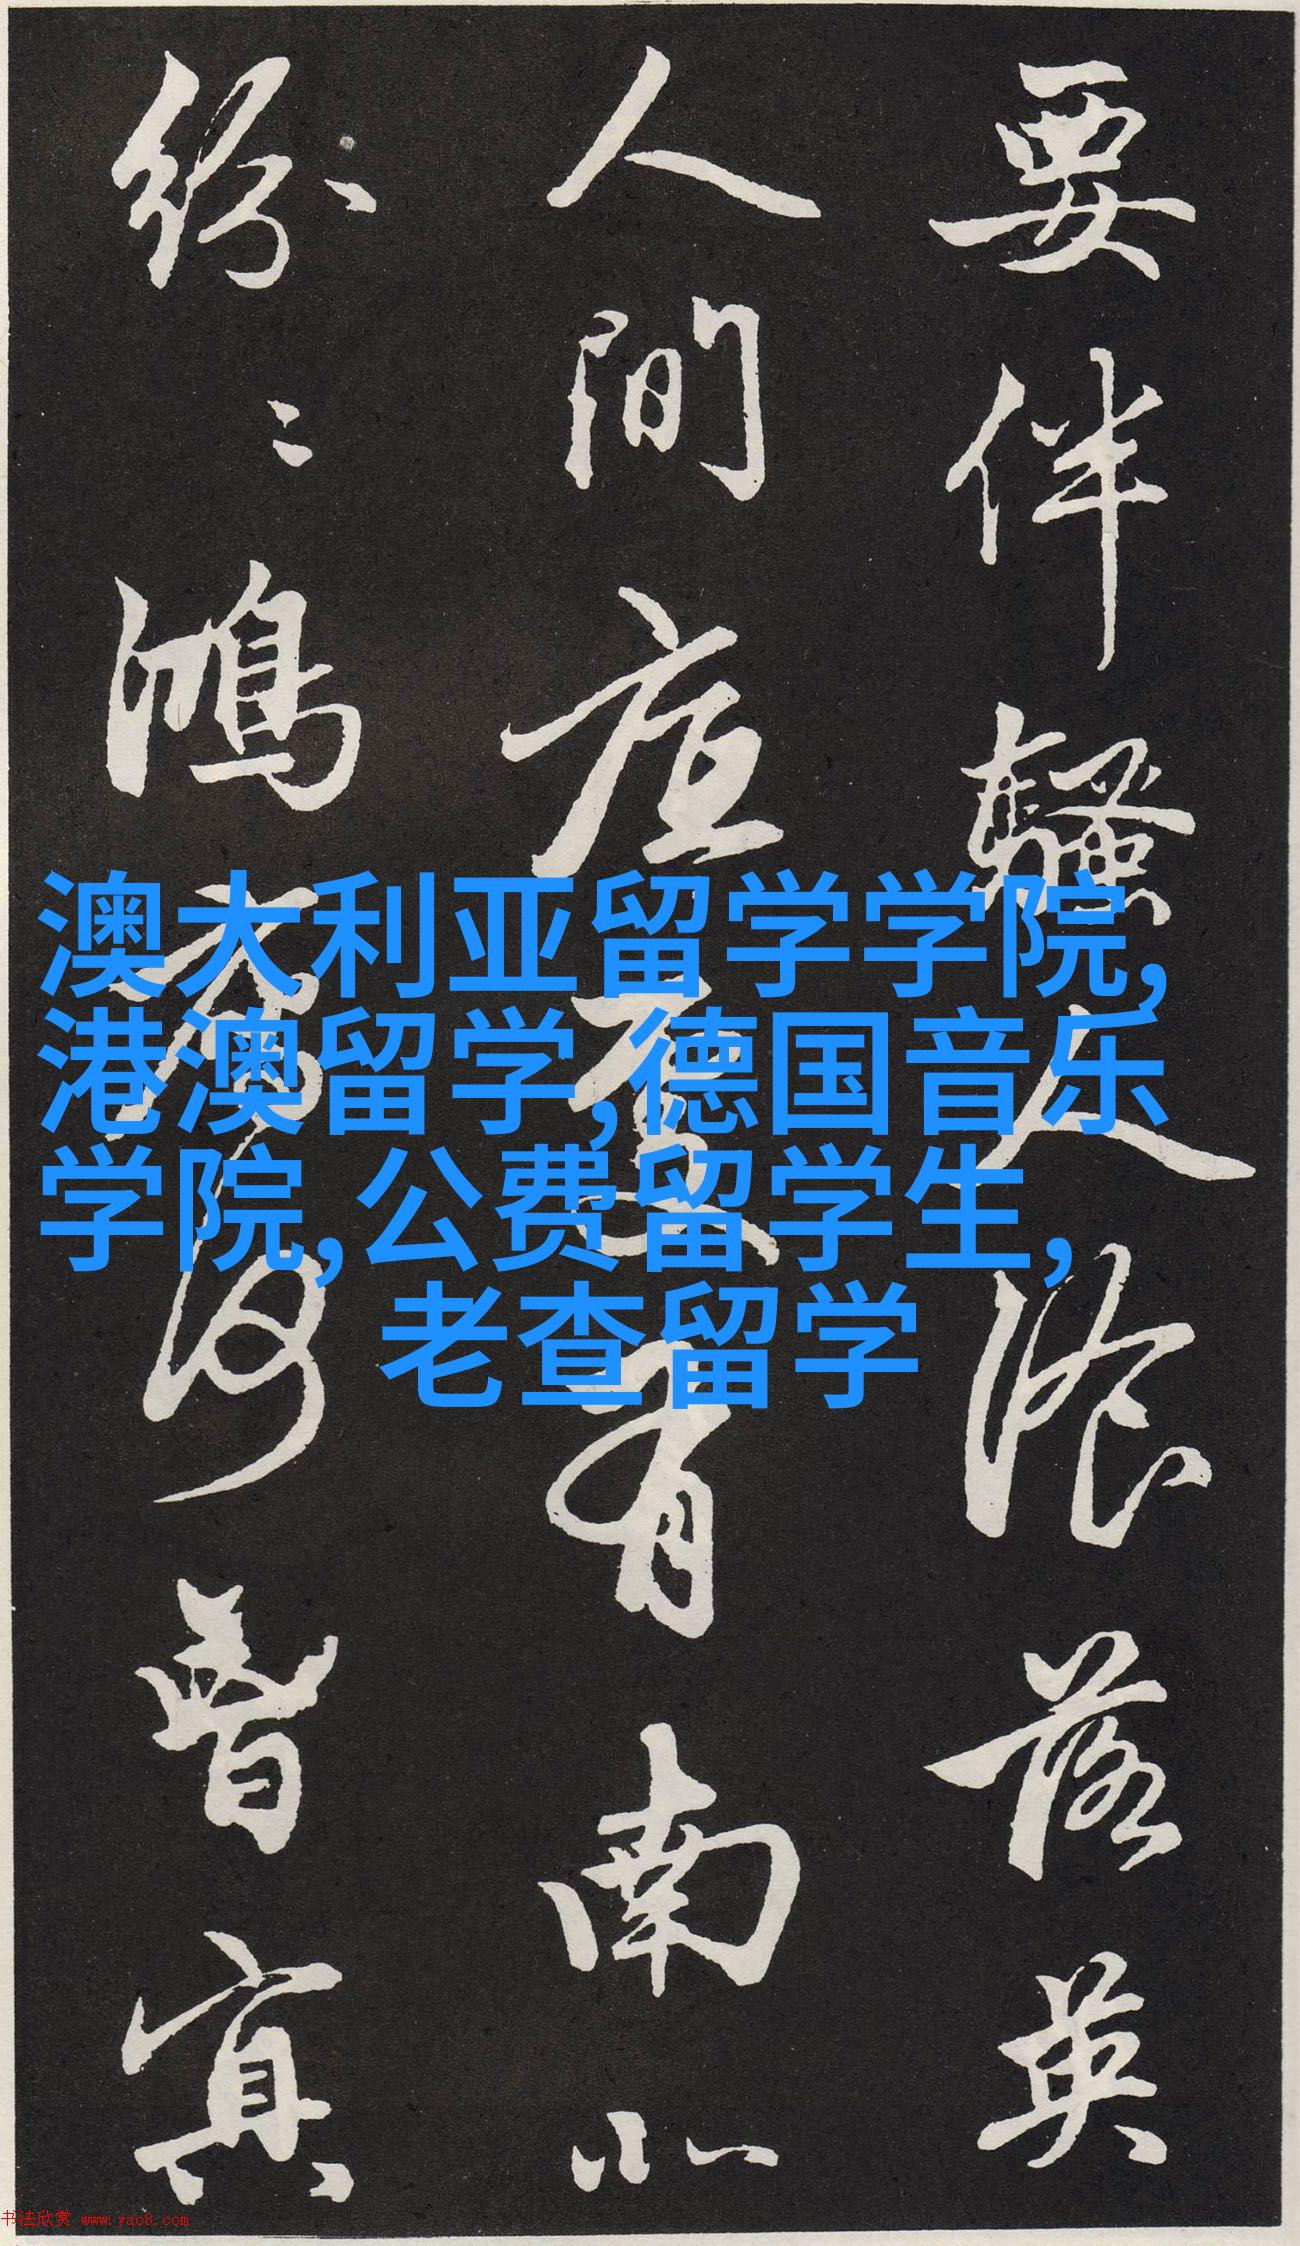 要伴騷人湌落英
人間底處有南北
紛〻鴻雁何曾冥
澳大利亚留学学院,
港澳留学,德国音乐
学院,公费留学生,
老查留学
书法欣赏 www.yac8.com